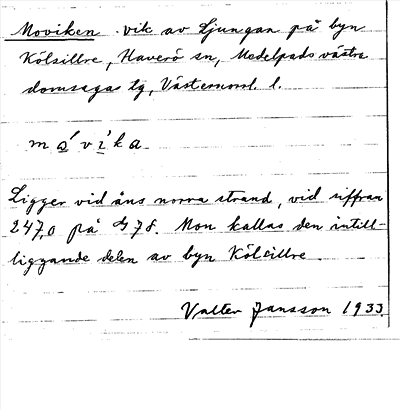 Moviken vik av Ljungan på byn
Kölsillre, Haverö sn, Medelpads västra
domsagas tg, Västernorrl. l.
mǫ́ví̱ka
Ligger vid åns norra strand, vid siffran
247,0 på G 78. Mon kallas den intill-
liggande delen av byn Kölsillre.
Valter Jansson 1933.